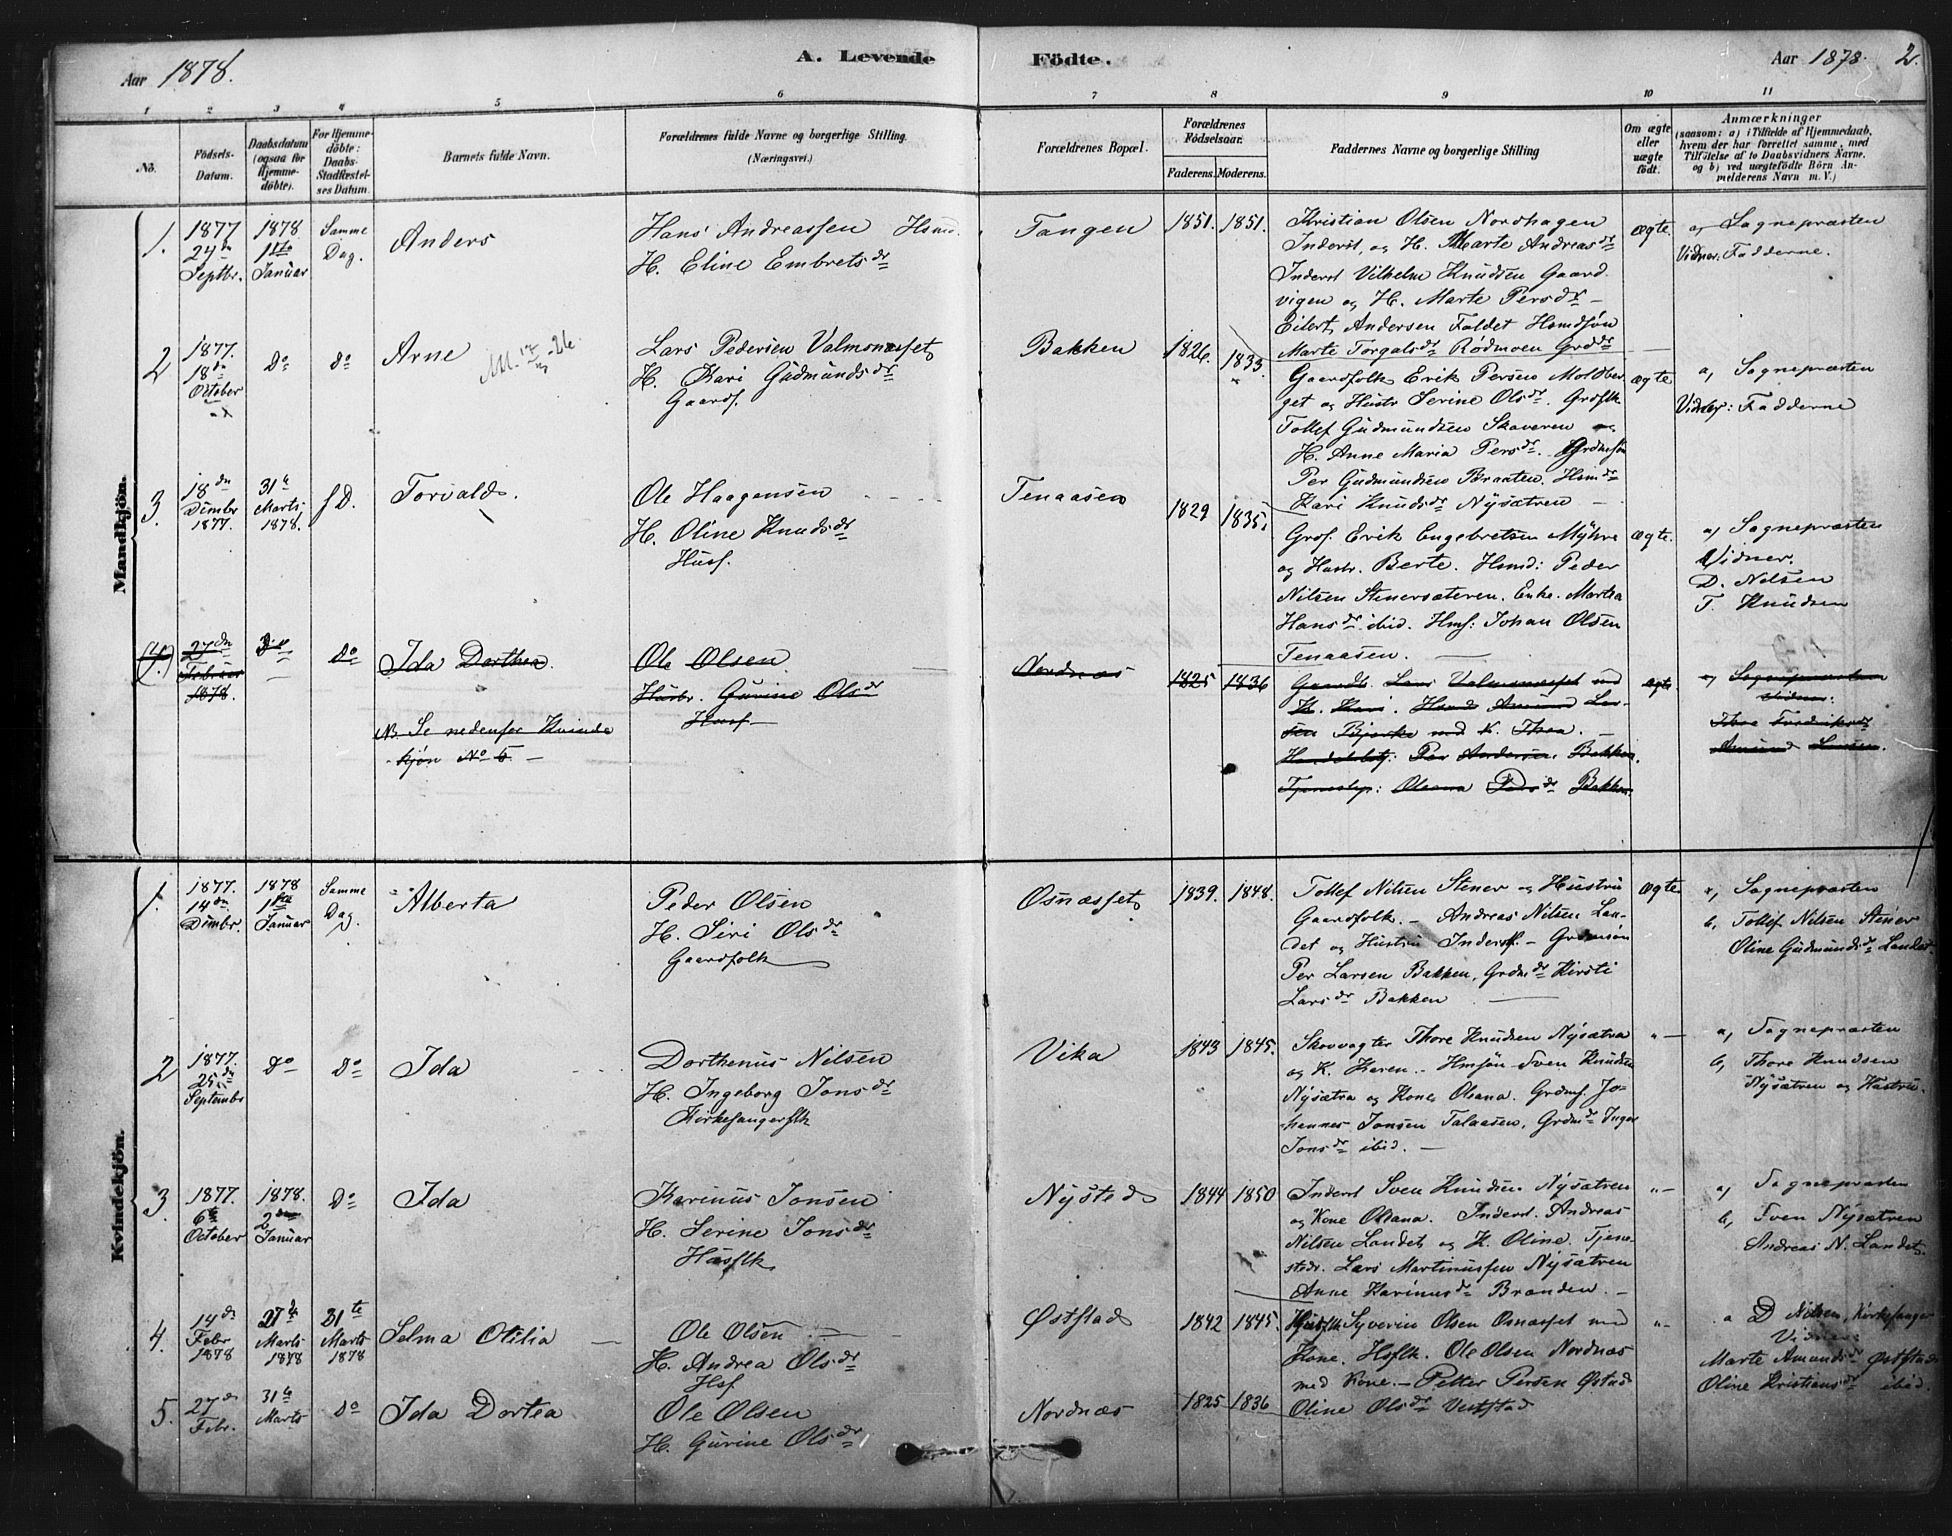 Aar 1878.
A. Levende Födte.
Aar 1878. 2.
1 2 3 4 5 6 7 8 9 10 11
No.
Födsels-Datum.
Daabsdatum (ogsaa for Hjemme-döbte).
For Hjemme-döbte: Daabs-Stadfæstel-ses Datum.
Barnets fulde Navn.
Forældrenes fulde Navne og borgerlige Stilling
(Næringsvei.)
Forældrenes Bopæl.
Forældrenes Födselsaar.
Faderens. Moderens.
Faddernes Navne og borgerlige Stilling
Om ægte eller uægte födt.
Anmærkninger
(saasom: a) i Tilfælde af Hjemmedaab,
hvem der har forrettet samme, med
Tilföielse af to Daabsvidners Navne,
og b) ved uægtefödte Börn An-
melderens Navn m. V.)
Mandkjön.
1. 1877 24de Septbr. 1878 1ste Januar Samme Dag. Anders
Hans Andreassen Hsmd.
H. Eline Embretsdr
Tangen 1851. 1851.
Kristian Olsen Nordhagen
Inderst, og H. Marte Andreasdr
Inderst Vilhelm Knudsen Gaard
vigen og H. Marte Persdr –
Eilert Andersen Faldet Hsmdsøn
Marte Torgalsdr Rødmoen Grddr
ægte.
a, Sognepræsten
Vidner: Fadderne.
2 1877. 18de October Do Do Arne
Lars Pedersen Valmsnesset
H. Kari Gudmundsdr
Gaardf.
Bakken 1826. 1833.
Gaardfolk Erik Persen Moldber
get og Hustr Serine Olsdr. Grdflk
Tollef Gudmundsen Skaveren og
H. Anne Maria Persdr. Grdmsøn
Per Gudmundsen Braaten. Hsmdr
Kari Knudsdr Nysætren –
ægte
a, Sognepræsten
Vidner: Fadderne
3. 18de Dcmbr 1877. 31te Marts 1878. s D. Torvald.
Ole Haagensen
H. Oline Knudsdr
Husf.
Tenaasen 1829 1835.
Grdf. Erik Engebretsen Myhre
og Hustr. Berte. Hsmd: Peder
Nilsen Stenersæteren. Enke. Martea
Hansdr ibid. Hmf: Johan Olsen
Tenaasen.
ægte.
a, Sognepræsten
Vidner.
D. Nilsen
T. Knudsen
(4.) 27de Februar 1878. Do Do Ida Dorthea.
NB Se nedenfor Kvinde
kjøn No 5 –
Ole Olsen
Hustr. Gurine Olsdr
Husf –
Nordnæs 1825 1836
Gaardb. Lars Valmsnæsset md
K. Kari. Hsmd Amund Lar-
sen Bjerke md K. Thea. –
Per Andersen Bakken.
Tjenestep: Oleana Persdr Bakken.
ægte.
a, Sognepræsten
Vidner:
Amund Larsen.
Kvindekjön.
1. 1877. 14de Dcmbr. 1878 1ste Januar Samme Dag. Alberta
Peder Olsen
H. Siri Olsdr
Gaardfolk
Osnæsset 1839. 1848.
Tollef Nilsen Stener og Hustru
Gaardfolk. – Andreas Nilsen Lan-
det og Hustru Inderst. – Grdmsøn
Per Larsen Bakken, Grdmdr Kirsti
Larsdr Bakken
ægte
a, Sognepræsten
b, Tollef Nilsen Stener
Oline Gudmundsdr Landet
2 1877. 25de Septembr Do Do Ida
Dorthenus Nilsen
H. Ingeborg Jonsdr
Kirkesangerflk
Vika 1843 1845.
Skovvogter Thore Knudsen Nysætra
og K. Karen. – Hmsøn Sven Knudsen
Nysætra og Kone Oleana. Grdmf. Jo-
hannes Jonsen Talaasen, Grdmdr Inger
Jonsdr ibid. –
" –
a, Sognepræsten
b, Thore Knudsen
Nysætren og Hustru.
3. 1877. 6te October 1878. 2den Januar Do Ida
Karinus Jonsen
H. Serine Jonsdr
Husflk
Nysted 1844 1850
Inderst Sven Knudsen Nysætren
og Kone Oleana. Inderst. Andreas
Nilsen Landet og K. Oline. Tjene-
stedr. Lars Martinussen Nysætren
Anne Karinusdr Branden. –
" –
a, Sognepræsten
b, Sven Nysætren
Andreas N. Landet.
4. 14de Febr 1878 27de Marts 1878 31te Marts 1878 Selma Otilia –
Ole Olsen
H. Andrea Olsdr
Hsf
Øststad 1842 1845.
Husflk Syverin Olsen Osnæsset med
Kone. Hsflk. Ole Olsen Nordnæs
med Kone. – Petter Persen Østad
Oline Olsdr Vestad
" –
a D Nilsen, Kirkesanger
Vidner
Marte Amundsdr Øststad
Oline Kristiansdr ibid.
5. 27de Febr. 31te Marts Do Ida Dortea
Ole Olsen
H. Gurine Olsdr
Nordnæs 1825 1836